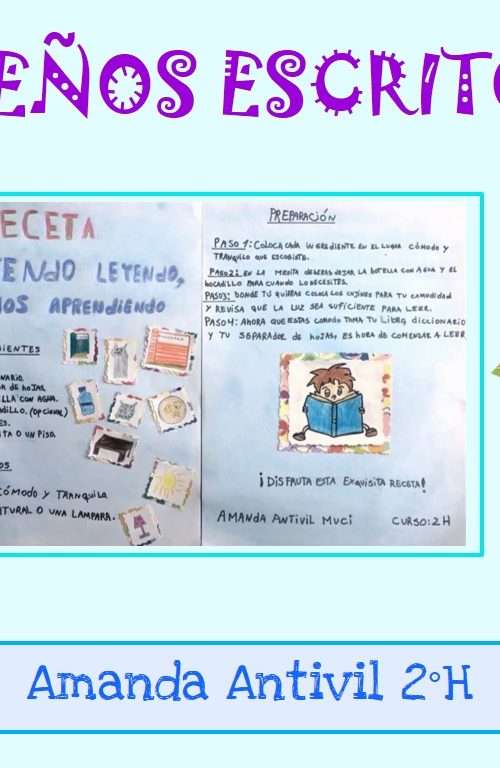 EÑOS ESCRITO
ECETA
ENDO LEYENDO,
OS APRENDIENDO
IENTES
NARIO.
A DE HOJAS.
LLA CON AGUA.
ADILLO. (OPCIONAL)
ES.
ITA O UN PISO
OS
CÓMODO Y TRANQUILA
ATURAL O UNA LAMPARA.
PREPARACIÓN
PASO 1: COLOCA CADA INGREDIENTE EN EL LUGAR CÓMODO Y
TRANQUILO QUE ESCOGISTE.
PASO 2: EN LA MESITA DEBERAS DEJAR LA BOTELLA CON AGUA Y EL
BOCADILLO PARA CUANDO LO NECESITES.
PASO3: DONDE TÚ QUIERAS COLOCA LOS COJINES PARA TU COMODIDAD
Y REVISA QUE LA LUZ SEA SUFICIENTE PARA LEER.
PASO4: AHORA QUE ESTAS COMODO TOMA TU LIBRO, DICCIONARIO
Y TU SEPARADOR DE HOJAS, ES HORA DE COMENZAR A LEER
¡DISFRUTA ESTA EXQUISITA RECETA!
AMANDA ANTIVIL MUCI CURSO: 2H
Amanda Antivil 2°H